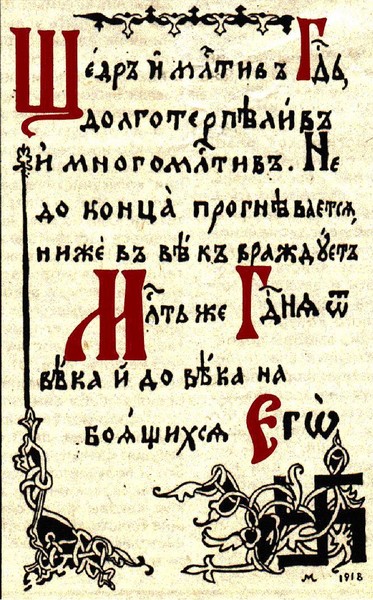 Ще́дръ и҆ мл҃тивъ Гд҃ь,
долготерпѣли́въ
и҆ многомл҃тивъ. Не
до конца̀ прогнѣ́ваетсѧ,
ниже́ въ вѣ́къ враждꙋ́етъ
Мл҃ть же Гд҃нѧ ѿ
вѣ́ка и҆ до вѣ́ка на
боѧ́щихсѧ Егѡ̀
М 1918